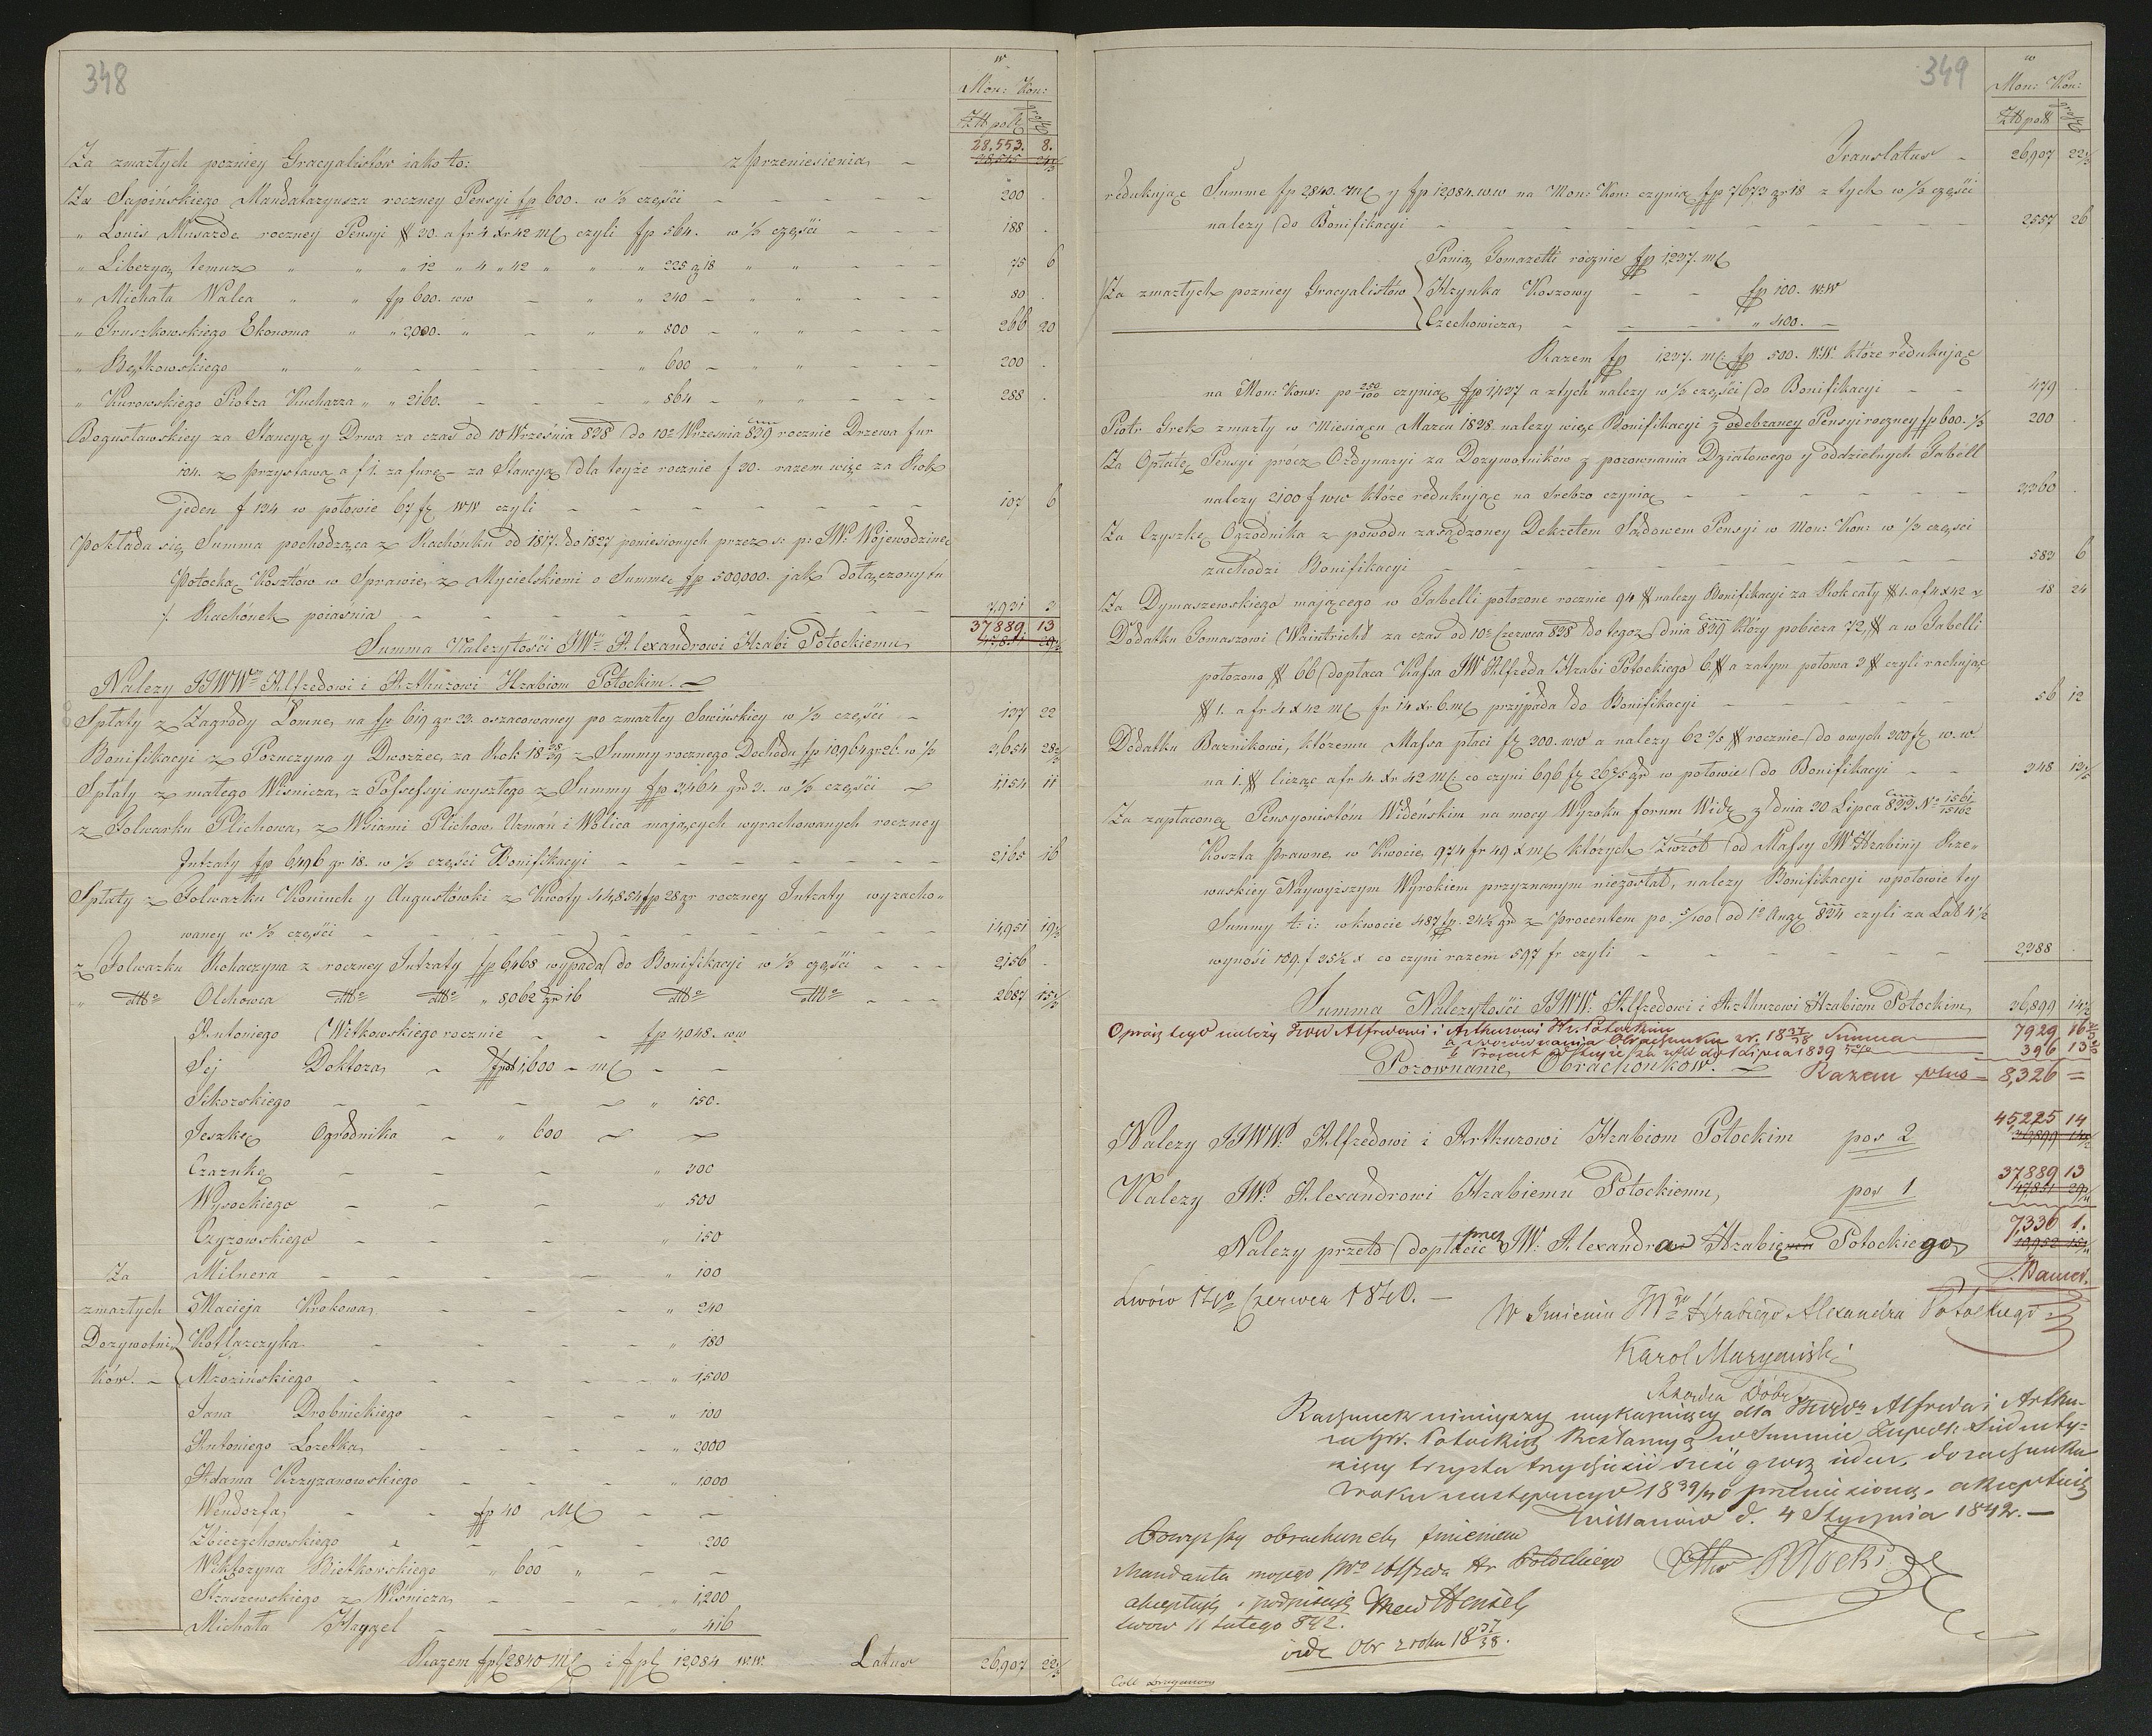 348
w
Mon: Kon:
Za zmarłych pozniey Gracyalistów iako to: z przeniesienia 28,553. 8.
Za Sapińskiego Mandataryusza roczney Pensyi fp 600. w 1/3 części 200
" Louis Musarde roczney Pensyi # 30. a fr 4 Xr 42 MC czyli fp 564. w 1/3 części 188
" Liberya temuz " " 12 " 4 " 42 " " 225 g 18 " " 75 6
" Michała Walca " " fp 600. ww " 240 " " 80
" Gruszkowskiego Ekonoma " " 2,000. " " 800 " " 266 20
" Bętkowskiego " " " 600 " " 200
" Kurowskiego Piotra Kucharza " " 2160. " 864 " " 288
Bogusławskiey za Stancyą y Drwa za czas od 10 Września 838 do 10 Wrzesnia 839 rocznie Drzewa fur
104. z przystawą a f 1. za furę – za Stancyą dla teyże rocznie f 30. razem więc za Rok
jeden f 134 w połowie 67 fr WW czyli 107 6
Pokłada się Summa pochodząca z Rachónku od 1817. do 1827 poniesionych przez s: p: JW: Wojewodzinę
Potocką Kosztów w Sprawie z Mycielskiemi o Summę fp 500,000. jak dołączony tu
/. Rachónek poiaśnia 7,931 3
37889 13
Summa Nalezytości JWu Alexandrowi Hrabi Potockiemu
Nalezy JJWW Alfredowi i Arthurowi Hrabiom Potockim.
Spłaty z Zagrody Łomne, na fp 619 gr 22. oszacowaney po zmarłey Sowińskiey w 1/3 części 137 22
Bonifikacyi z Poruczyna y Dworzec, za Rok 18 38/39 z Summy rocznego Dochodu fp 10,964 gr 26. w 1/3 3,654 28 2/3
Spłaty z małego Wisnicza, z Possessyi wyszłego z Summy fp 3,464 grd 3. w 1/3 części 1,154 11
z Folwarku Plichowa, z Wsiami Plichow, Urmań i Wolica mających wyrachowanych roczney
Intraty fp 6,496 gr 18. w 1/3 części Bonifikacyi 2,165 16
Spłaty z Folwarku Koniuch y Augustówki z Kwoty 44,854 fp 28 gr roczney Intraty wyracho=
waney w 1/3 części 14,951 19 1/3
z Folwarku Rohaczyna z roczney Intraty fp 6468 wypada do Bonifikacyi w 1/3 części 2,156
" dtto Olchowca dtto dtto " 8,062 gr 16 dtto dtto 2687 15 1/3
Za zmarłych Dozywotni,, ków.
Antoniego Witkowskiego rocznie fp 4,048. ww
Jej Doktora 1,600 - MC
Sikorskiego " 150.
Jeszkę Ogrodnika " 600
Czarnkę " 300
Wysockiego " 500
Czyzowskiego " 150
Milnera " 100
Macieja Krokowa " 240
Kotlarczyka " 180
Mrozińskiego " 1,500
Jana Drobnickiego " 100
Antoniego Lozetka " 2,000
Adama Krzyzanowskiego " 1,000
Wendorfa fp 40 MC
Zbierzchowskiego " 200
Wiktoryna Bietkowskiego " 600 "
Straszewskiego z Wiśnicza " 1,200
Michała Hrygel " 416
Razem fp 2840 MC i fp 12,084 w.w. Latus 26,907 22 1/3
349
w
Mon: Kon:
Translatus 26,907 22 1/3
redukując Summę fp 2840. MC y fp 12,084. ww na Mon: Kon: czynią fp 7673 gr 18 z tych w 1/3 części
nalezy do Bonifikacyi 2557 26
Za zmarłych pozniey Gracyalistów
Panią Tomazetti rocznie fp 1,237. MC
Hrynka Koszowy fp 100. W:W
Czechowicza " 400.
Razem fp 1237. MC: fp 500. W:W. które redukując
na Mon: Konv: po 250/100 czynią fp 1,437 a z tych nalezy w 1/3 części do Bonifikacyi 479
Piotr Grek zmarły w Miesiącu Marcu 1838. nalezy więc Bonifikacyi z odebraney Pensyi roczney fp 600. 1/3 200
Za Opłatę Pensyi prócz Ordynaryi za Dozywotników z porownania Działowego y oddzielnych Tabell
nalezy 2,100 f ww które redukując na Srebro czynią 3,360
Za Czyszkę Ogrodnika z powodu zasądzoney Dekretem Sądowem Pensyi w Mon: Kon: w 1/3 części
zachodzi Bonifikacyi 583 6
Za Dymaszewskiego mającego w Tabelli połozone rocznie 94 # nalezy Bonifikacyi za Rok cały # 1. a f 4 x 42 18 24
Dodatku Tomaszowi Waintricht za czas od 10 Czerwca 838 do tegoz dnia 839 Który pobiera 72, # a w Tabelli
połozono # 66 dopłaca Kassa JW Alfreda Hrabi Potockiego 6, # a zatym połowa 3 # czyli rachując
# 1. a fr 4 X 42 MC fr 14 Xr 6. MC przypada do Bonifikacyi 56 12
Dodatku Baznikowi, któremu Massa płaci fr 300. ww a nalezy 62 2/5 # rocznie do owych 300 fr w. w
na 1. # licząc a fr 4. Xr 42 MC co czyni 696 fr 26 3/5 grd w połowie do Bonifikacyi 348
Za zapłaconą Pensyonistóm Wideńskim na mocy Wyroku forum Wid z dnia 30 Lipca 833. No
Koszta Prawne, w Kwocie 974 fr 49 x MC których Zwrót od Massy JW Hrabiny Rze=
wuskiey Naywyższym Wyrokiem przyznanym niezostał, nalezy Bonifikacyi w połowie tey
Summy t: i: w kwocie 487 fp. 24 1/2 grd z Procentem po. 5/100 od 1o Aug 834 czyli za Lat 4 1/2
wynosi 109. f 35 1/2 x co czyni razem 597 fr czyli 2,388
Summa Nalezytości JJWW: Alfredowi i Arthurowi Hrabiom Potockim, 36,899 14
Oprócz tego należy JWW Alfredowi i Arthurowi Hr. Potockim
a z porównania Obrachunku z r. 18 37/38 Summa 7929 16
b Procent od tejże za rok do 1 Lipca 1839 5% 396 13
Porownanie Obrachonkow. Razem plus 8,326 =
45,225 14
Nalezy JJWWd: Alfredowi i Arthurowi Hrabiom Potockim por 2
37889 13
Nalezy JWd Alexandrowi Hrabiemu Potockiemu, por 1
7,336 1.
Nalezy przeto dopłacić przez JW: Alexandra Hrabiego Potockiego
Lwów 14go Czerwca 1840.
W Imieniu JWgo Hrabiego Alexandra Potockiego
Karol
Rządca Dóbr
Rachunek niniejszy wykazujący dla JWW Alfreda i Arthu-
ra Hr. Potockich Restancyą w Summie Złpolk: Siedmty-
sięcy trzysta trzydzieści sześć grosz ieden, do rachunku
z roku następnego 1839/40 przeniesioną, akceptuię
Willanów d. 4 Stycznia 1842.
Powyższy obrachunek Imieniem
Mandanta mojego JWo Alfreda Hr. Potockiego
akceptuję i podpisuję Hensel
Lwów 11 Lutego 842.
vide Obr z roku 18 37/38.
Coll